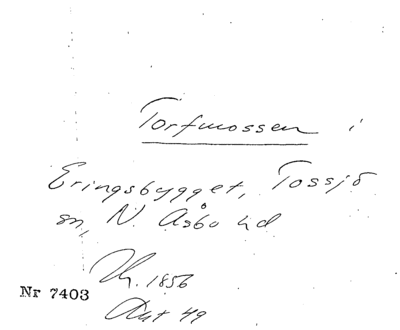 Torfmossen i
Eringsbygget, Tossjö
sn, N. Åsbo hd
1856
Nr 7403
Akt 49